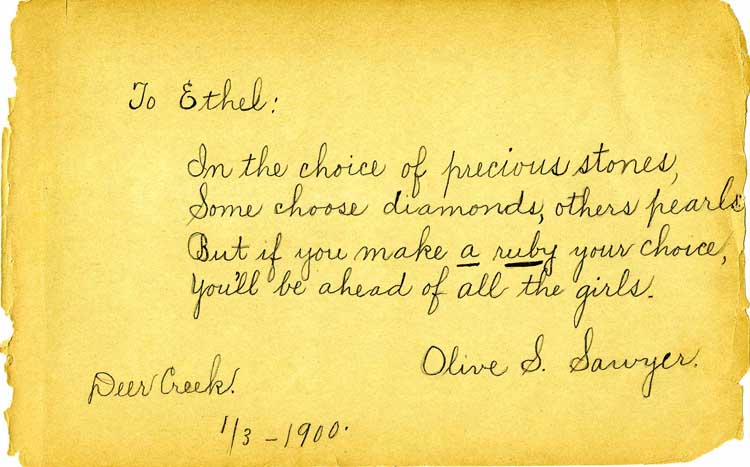 To Ethel:
In the choice of precious stones,
Some choose diamonds, others pearls
But if you make a ruby your choice,
You'll be ahead of all the girls.
Olive S. Sawyer.
Deer Creek.
1/3-1900.